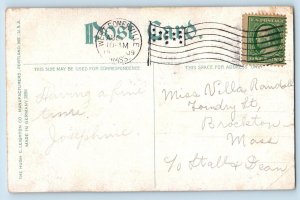 Post Card.
THIS SPACE MAY BE USED FOR CORRESPONDENCE
THIS SPACE FOR ADDRESS
THE HUGH C. LEIGHTON CO., MANUFACTURERS, PORTLAND, ME., U.S.A.
MADE IN GERMANY
10 AM
09
MASS.
Having a fine
time.
Josephine
Miss Villa Randall
Foundry St,
Brockton
Mass
c/o Stall & Dean